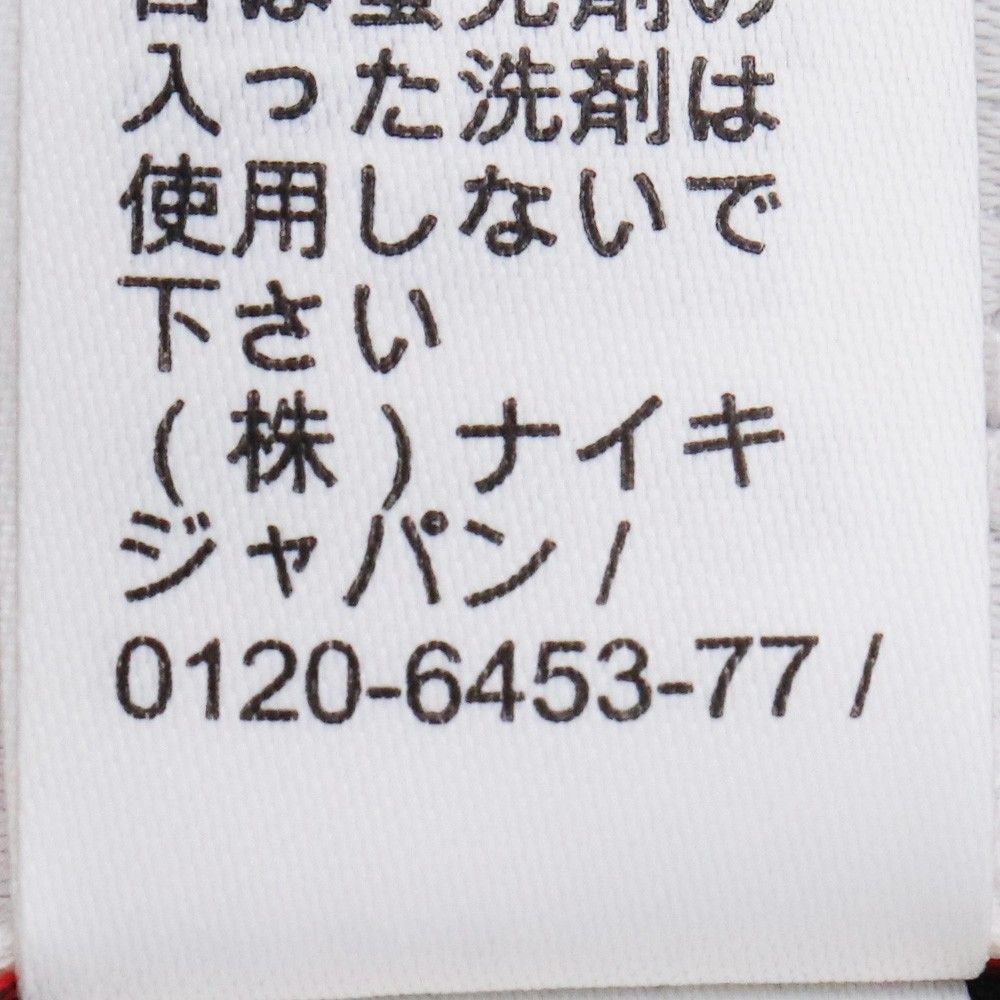 は蛍光剤の
入った洗剤は
使用しないで
下さい
(株)ナイキ
ジャパン/
0120-6453-77 /